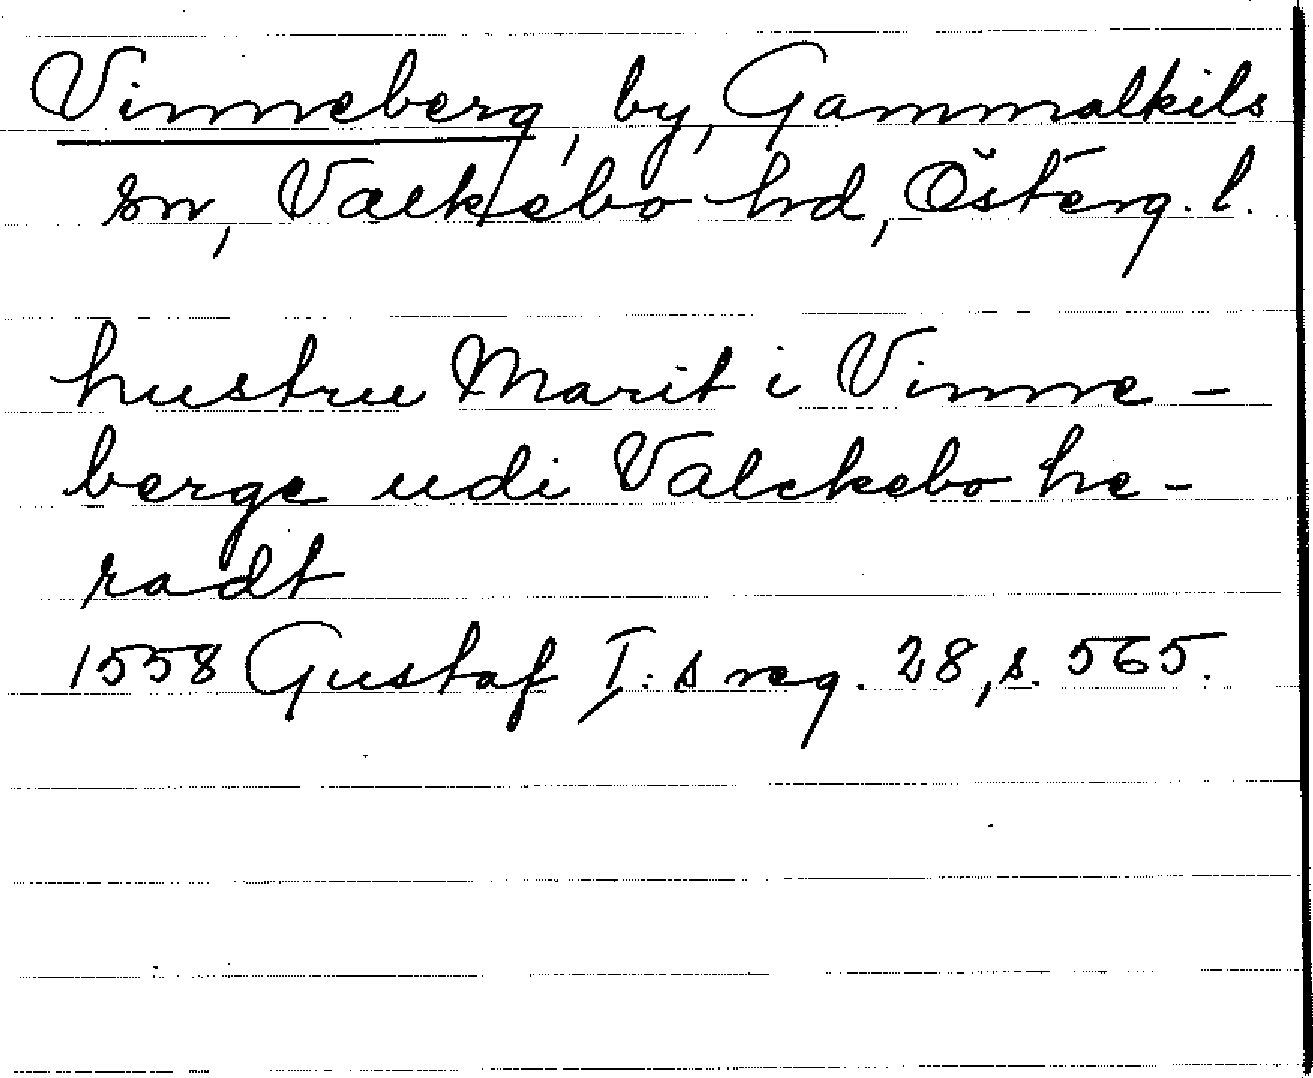 Vinneberg, by, Gammalkils
sn, Valkebo hd, Österg. l.
hustru Marit i Vinne-
berge udi Valckebo he-
radt
1558 Gustaf I:s reg. 28, s. 565.